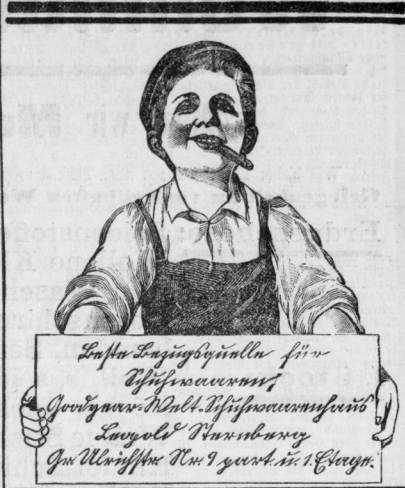 Beste Bezugsquelle für
Schuhwaaren!
Goodyear-Welt-Schuhwaarenhaus
Leopold Sternberg
Gr. Ulrichstr. Nr. 9 part. u. 1. Etage.